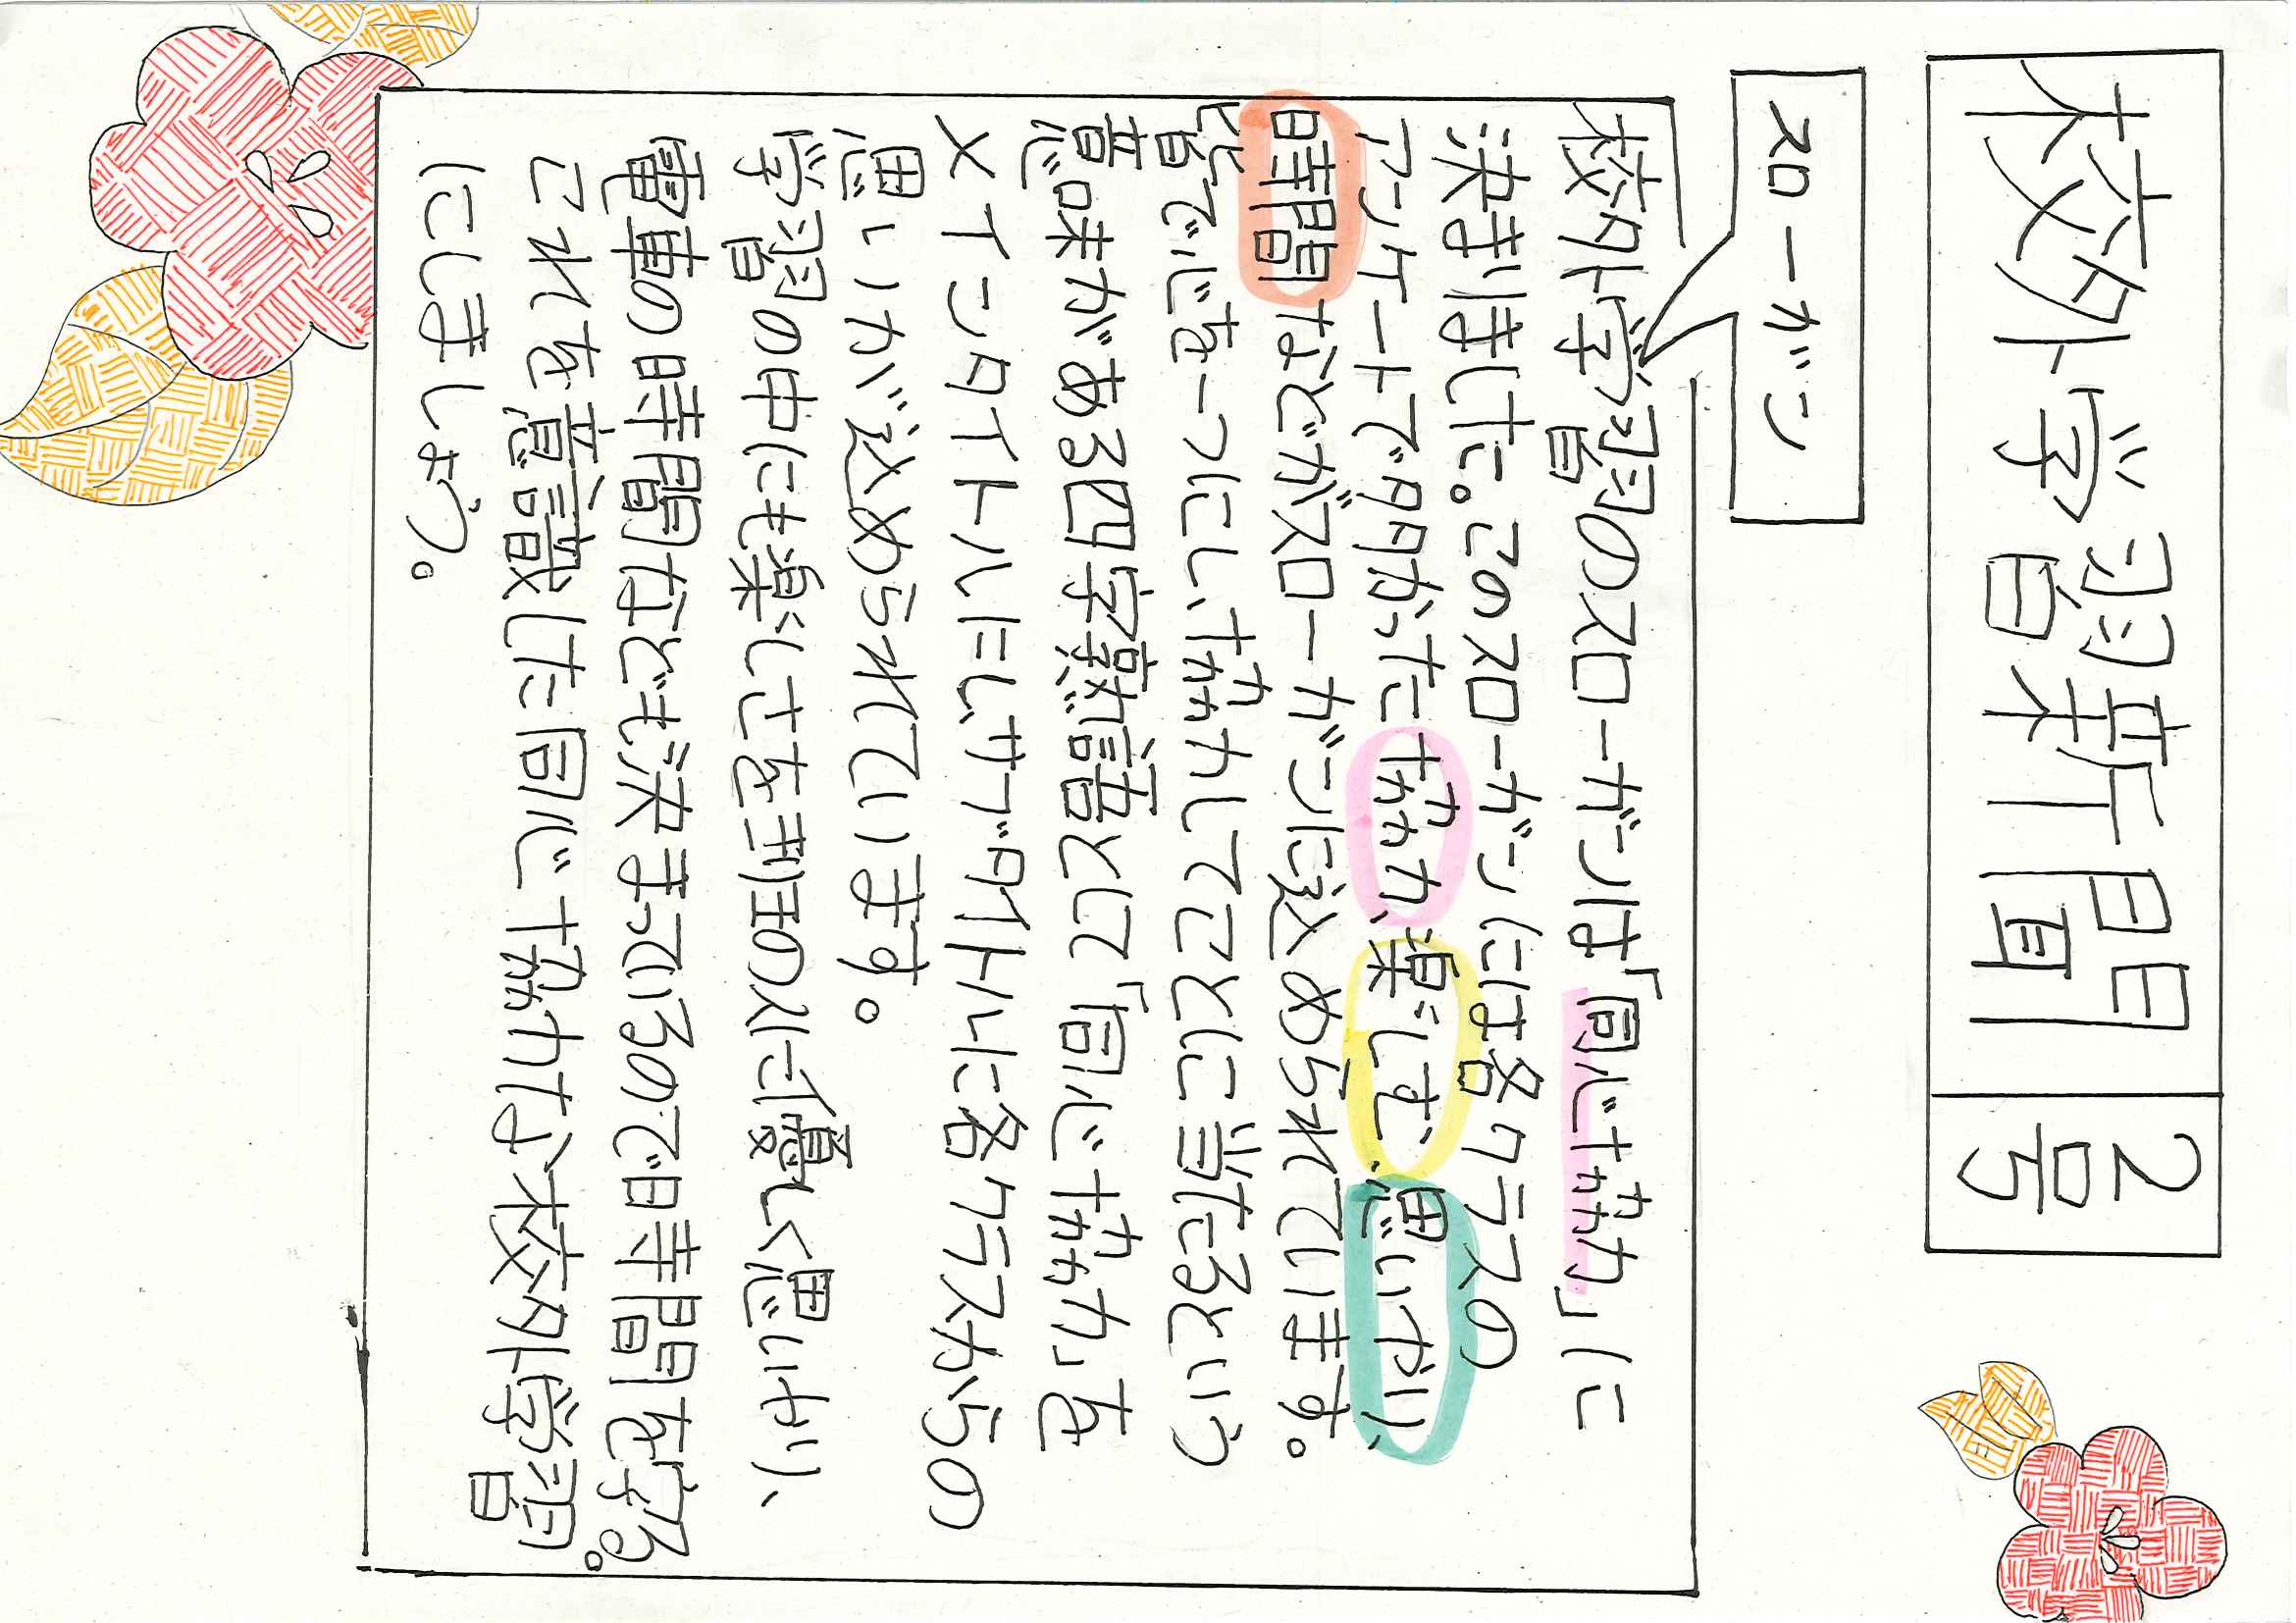 校外学習新聞 2号
スローガン
校外学習のスローガンは「同心協力」に
決まりました。このスローガンには各クラスの
アンケートで多かった協力、楽しむ、思いやり、
時間などがスローガンに込められています。
皆で心を一つにし、協力してことに当たるという
意味がある四字熟語として「同心協力」を
メインタイトルにし、サブタイトルに各クラスからの
思いが込められています。
学習の中にも楽しさを班の人に優しく思いやり、
電車の時間なども決まっているので時間を守る。
これを意識した同心協力な校外学習
にしましょう。